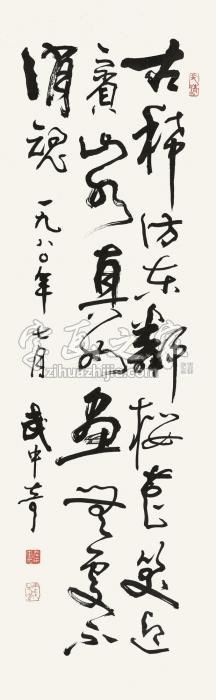 古稀访东邻樱花笑迎
宾山水真如画无处不
消魂
一九八〇年七月 武中奇
字画之家网
zihuazhijia.com